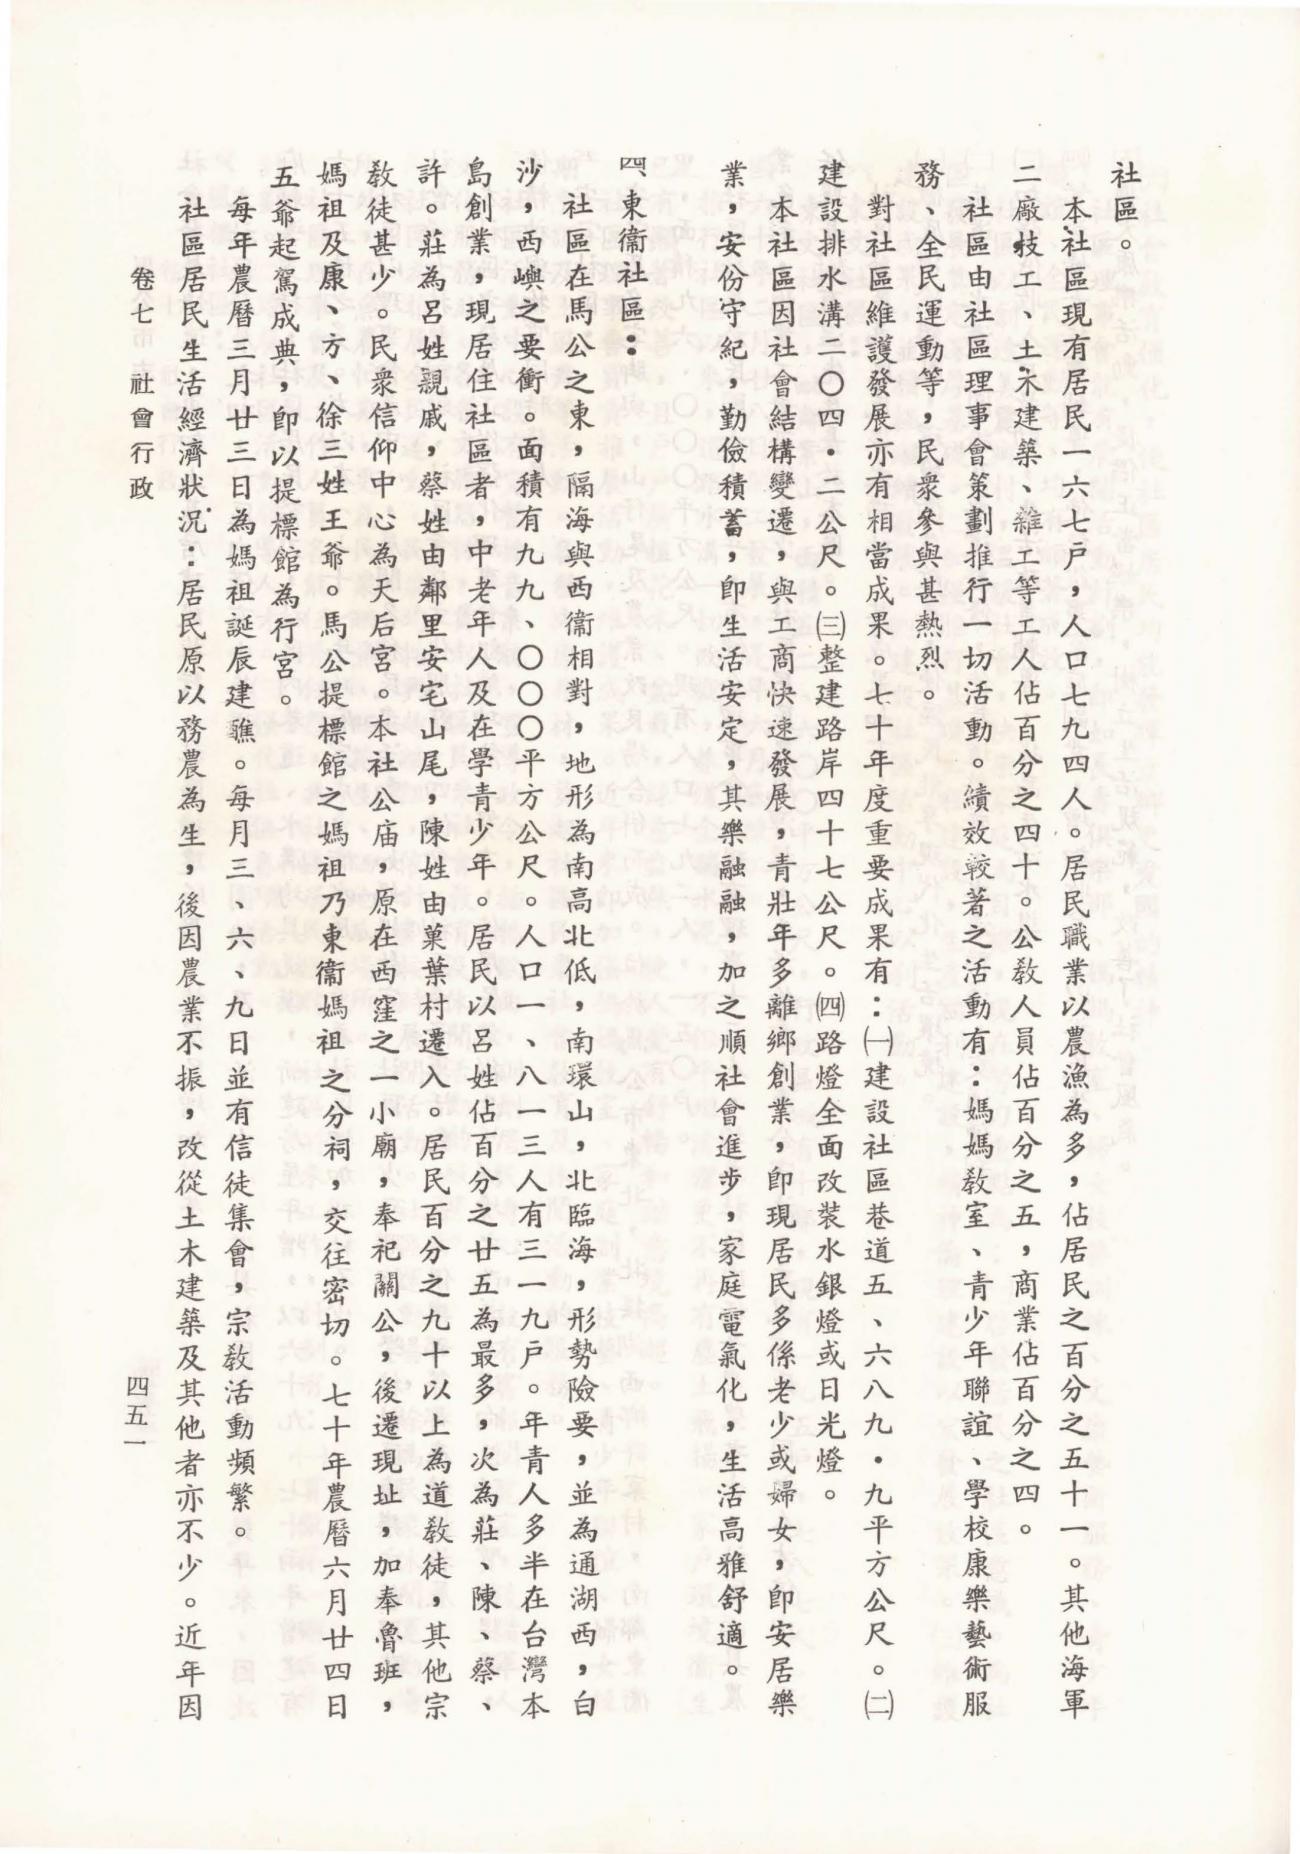 社區。
本社區現有居民一六七戶，人口七九四人。居民職業以農漁為多，佔居民之百分之五十一。其他海軍
二廠技工、土木建築、雜工等工人佔百分之四十。公教人員佔百分之五，商業佔百分之四。
社區由社區理事會策劃推行一切活動。績效較著之活動有：媽媽教室、青少年聯誼、學校康樂藝術服
務、全民運動等，民衆參與甚熱烈。
對社區維護發展亦有相當成果。七十年度重要成果有：㈠建設社區巷道五、六八九・九平方公尺。㈡
建設排水溝二〇四・二公尺。㈢整建路岸四十七公尺。㈣路燈全面改裝水銀燈或日光燈。
本社區因社會結構變遷，與工商快速發展，青壯年多離鄉創業，卽現居民多係老少或婦女，卽安居樂
業，安份守紀，勤儉積蓄，卽生活安定，其樂融融，加之順社會進步，家庭電氣化，生活高雅舒適。
四、東衞社區：
社區在馬公之東，隔海與西衞相對，地形為南高北低，南環山，北臨海，形勢險要，並為通湖西，白
沙，西嶼之要衝。面積有九九、〇〇〇平方公尺。人口一、八一三人有三一九戶。年青人多半在台灣本
島創業，現居住社區者，中老年人及在學青少年。居民以呂姓佔百分之廿五為最多，次為莊、陳、蔡、
許。莊為呂姓親戚，蔡姓由鄰里安宅山尾，陳姓由菓葉村遷入。居民百分之九十以上為道教徒，其他宗
教徒甚少。民衆信仰中心為天后宮。本社公庙，原在西窪之一小廟，奉祀關公，後遷現址，加奉魯班，
媽祖及康、方、徐三姓王爺。馬公提標館之媽祖乃東衞媽祖之分祠，交往密切。七十年農曆六月廿四日
五爺起駕成典，卽以提標館為行宮。
每年農曆三月廿三日為媽祖誕辰建醮。每月三、六、九日並有信徒集會，宗教活動頻繁。
社區居民生活經濟狀況：居民原以務農為生，後因農業不振，改從土木建築及其他者亦不少。近年因
卷七 社會行政
四五一